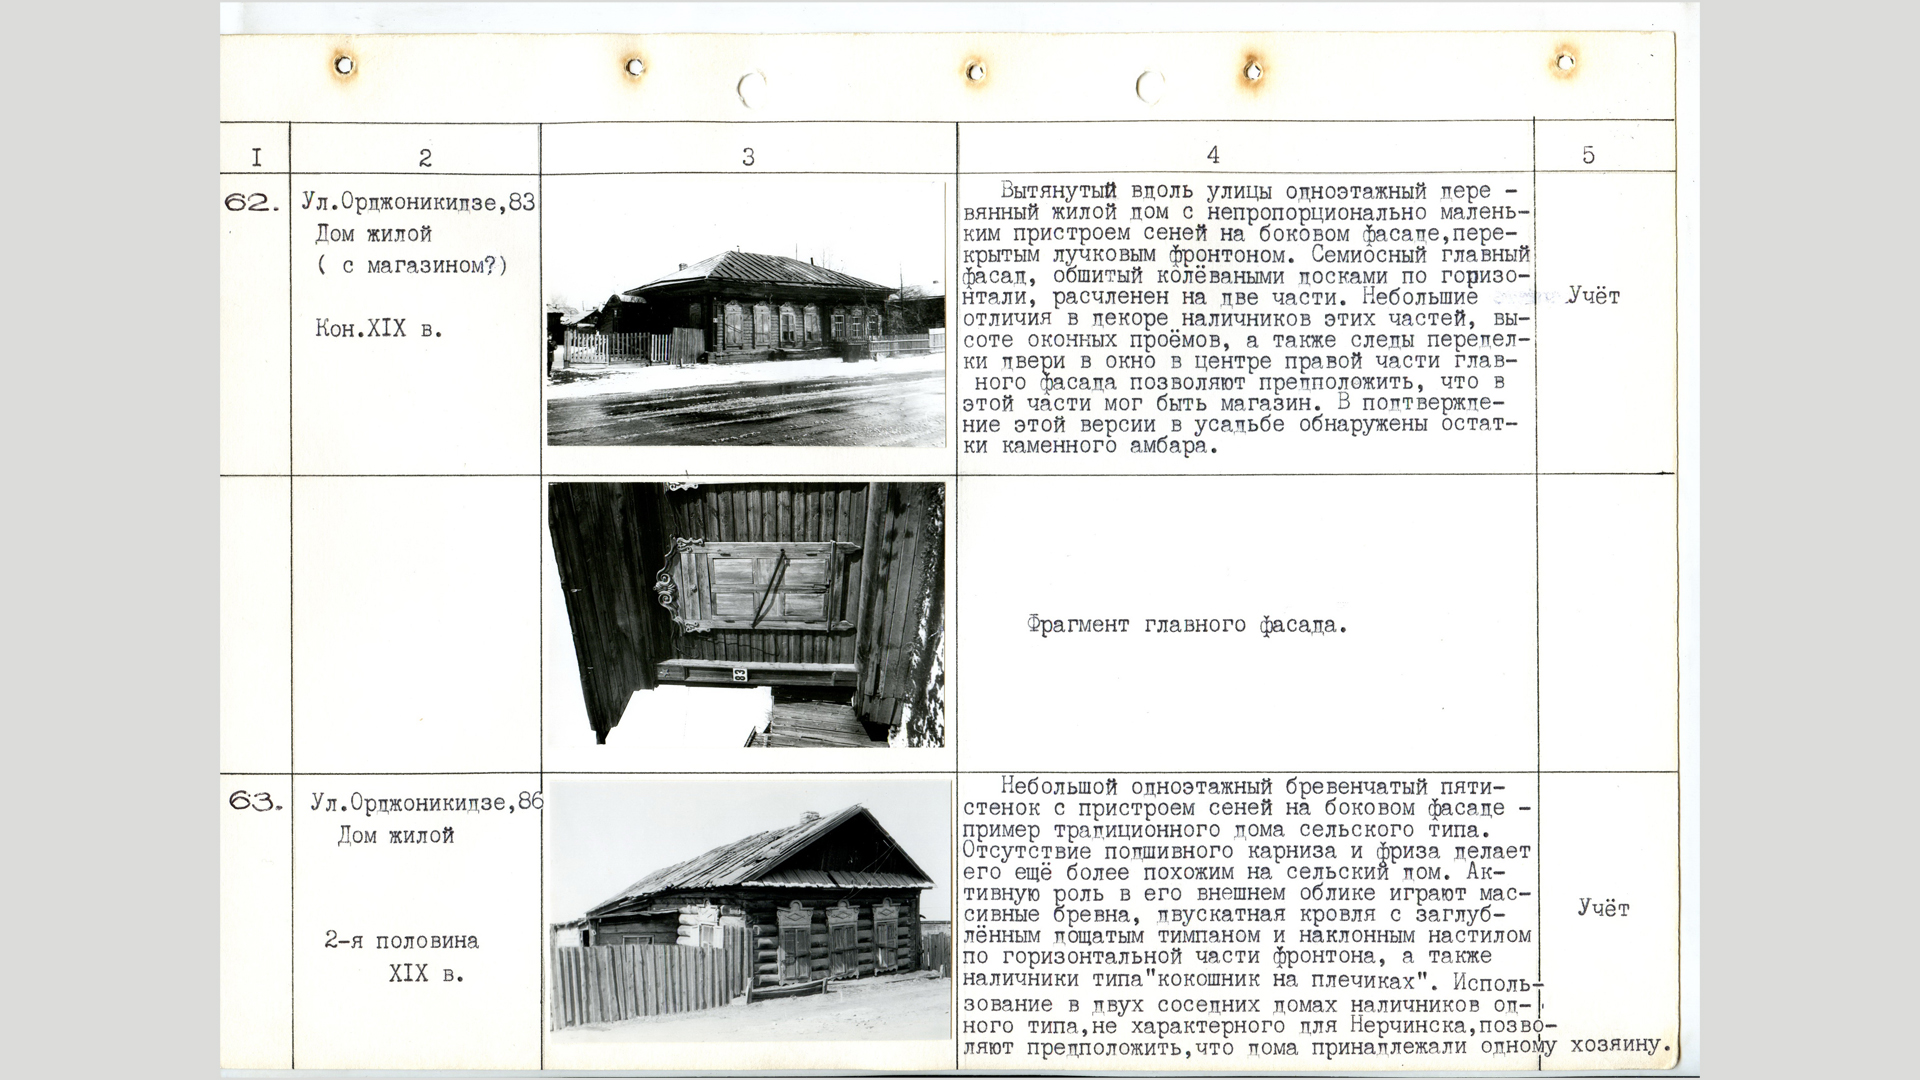 I 2 3 4 5
62.
Ул.Орджоникидзе,83
Дом жилой
( с магазином?)
Кон.XIX в.
Вытянутый вдоль улицы одноэтажный дере -
вянный жилой дом с непропорционально малень-
ким пристроем сеней на боковом фасаде,пере-
крытым лучковым фронтоном. Семиосный главный
фасад, обшитый колёваными досками по горизо-
нтали, расчленен на две части. Небольшие
отличия в декоре наличников этих частей, вы-
соте оконных проёмов, а также следы передел-
ки двери в окно в центре правой части глав-
ного фасада позволяют предположить, что в
этой части мог быть магазин. В подтвержде-
ние этой версии в усадьбе обнаружены остат-
ки каменного амбара.
Учёт
83
Фрагмент главного фасада.
63.
Ул.Орджоникидзе,86
Дом жилой
2-я половина
XIX в.
Небольшой одноэтажный бревенчатый пяти-
стенок с пристроем сеней на боковом фасаде -
пример традиционного дома сельского типа.
Отсутствие подшивного карниза и фриза делает
его ещё более похожим на сельский дом. Ак-
тивную роль в его внешнем облике играют мас-
сивные бревна, двускатная кровля с заглуб-
лённым дощатым тимпаном и наклонным настилом
по горизонтальной части фронтона, а также
наличники типа"кокошник на плечиках". Исполь-
зование в двух соседних домах наличников од-
ного типа,не характерного для Нерчинска,позво-
ляют предположить,что дома принадлежали одному хозяину.
Учёт